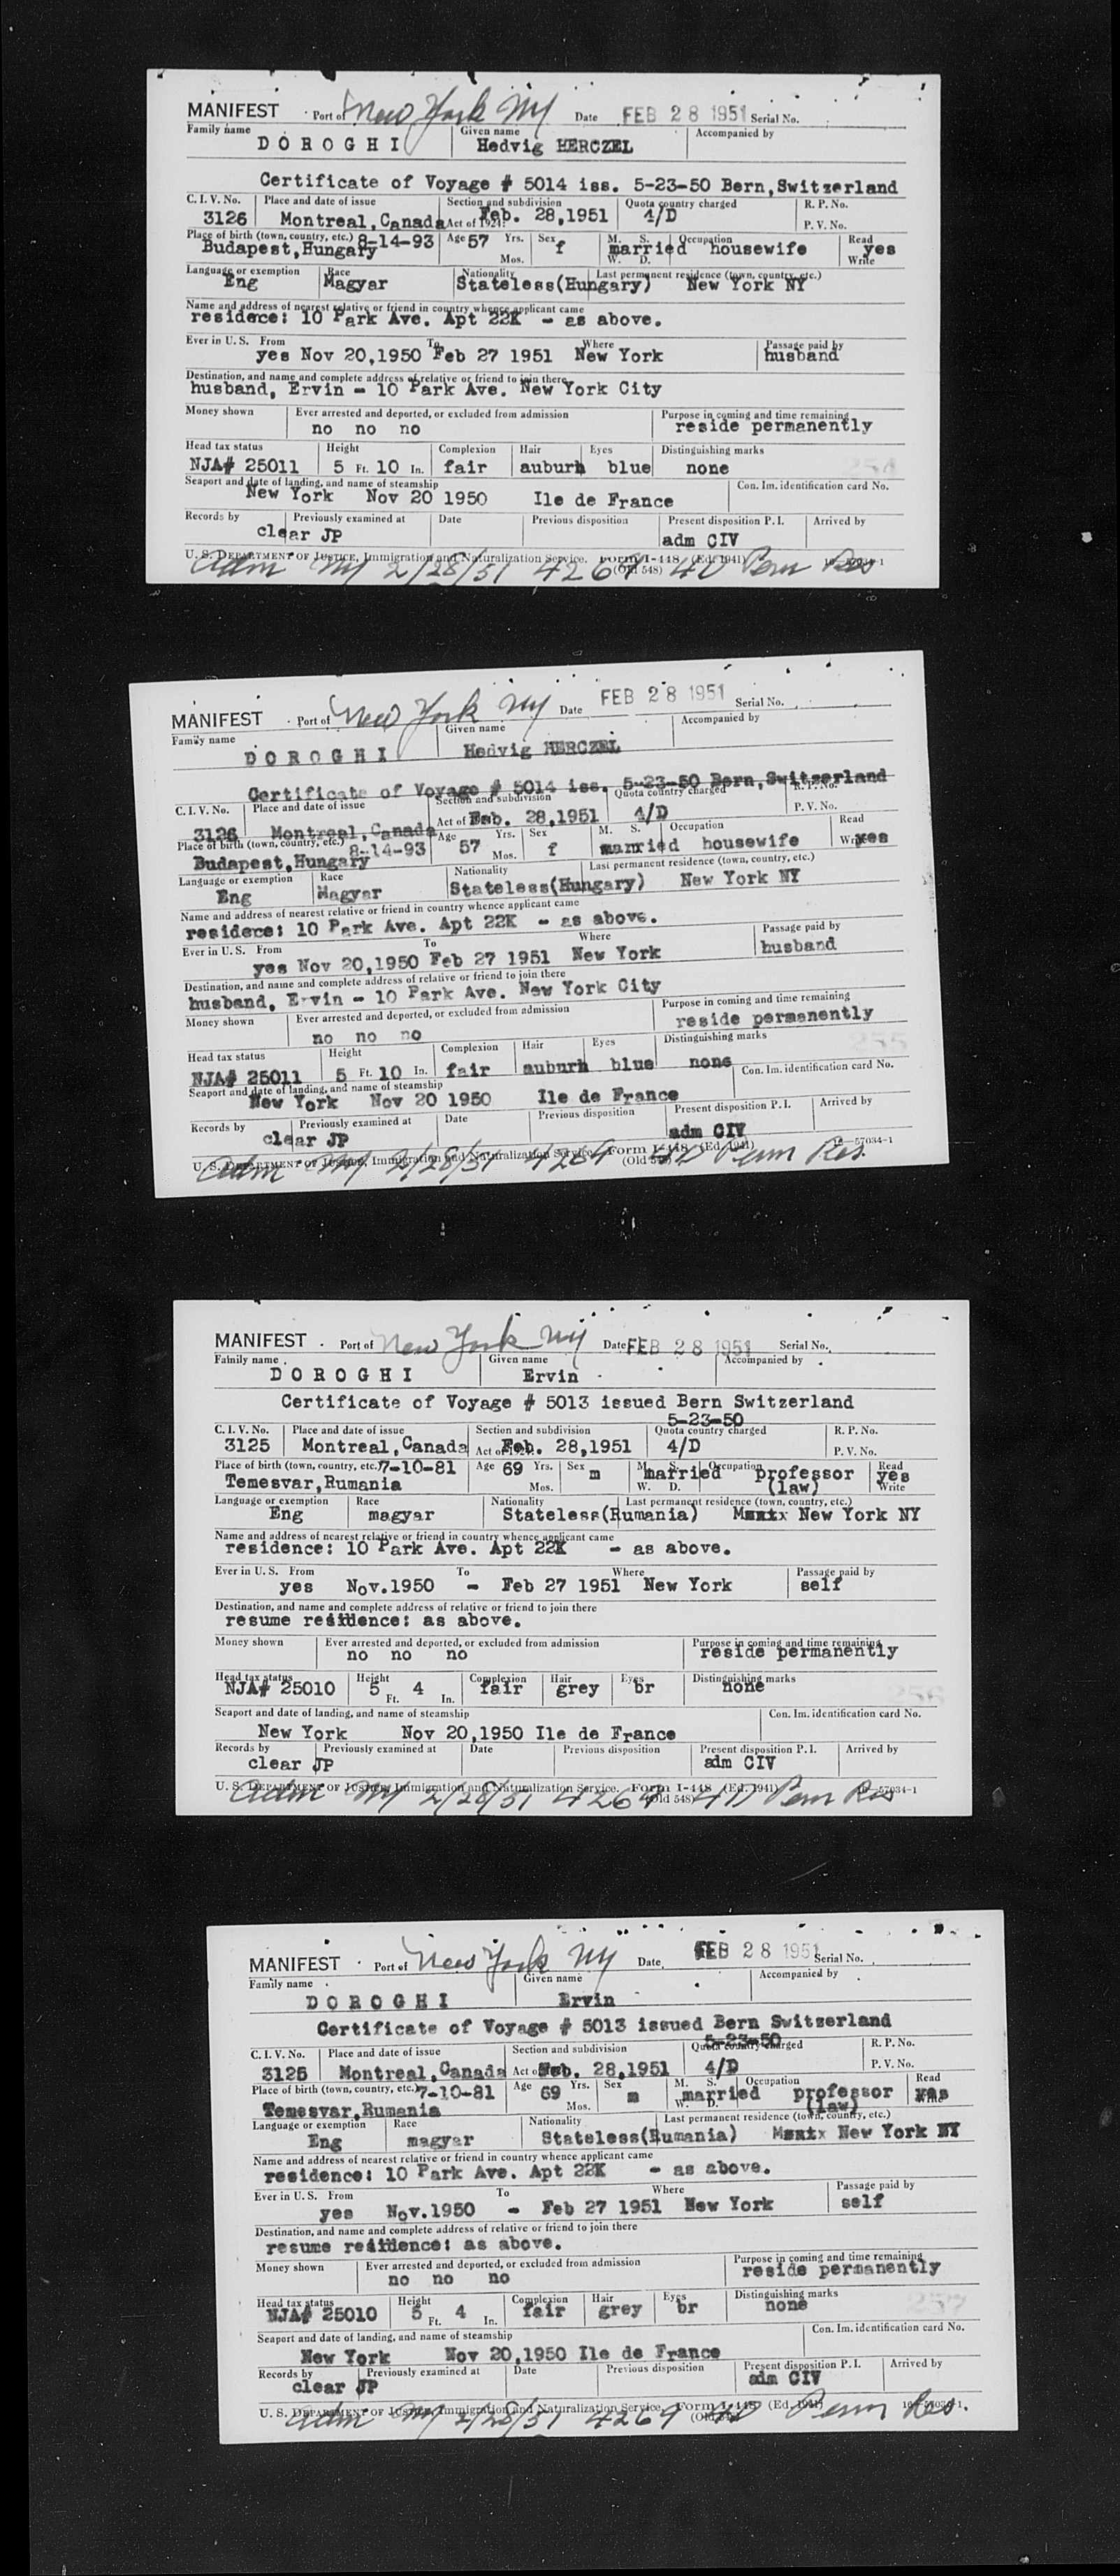 MANIFEST Port of New York NY Date FEB 28 1951 Serial No.
Family name Given name Accompanied by
DOROGHI Hedvig HERCZEL
Certificate of Voyage # 5014 iss. 5-23-50 Bern,Switzerland
C. I. V. No. Place and date of issue Section and subdivision Quota country charged R. P. No.
3126 Montreal,Canada Act of 1924: Feb. 28,1951 4/D P. V. No.
Place of birth (town, country, etc.) 8-14-93 Age 57 Yrs. Sex f M. S. Occupation Read
Budapest,Hungary Mos. W. D. married housewife yes Write
Language or exemption Race Nationality Last permanent residence (town, country, etc.)
Eng Magyar Stateless(Hungary) New York NY
Name and address of nearest relative or friend in country whence applicant came
residece: 10 Park Ave. Apt 22K - as above.
Ever in U. S. From To Where Passage paid by
yes Nov 20,1950 Feb 27 1951 New York husband
Destination, and name and complete address of relative or friend to join there
husband, Ervin - 10 Park Ave. New York City
Money shown Ever arrested and deported, or excluded from admission Purpose in coming and time remaining
no no no reside permanently
Head tax status Height Complexion Hair Eyes Distinguishing marks
NJA# 25011 5 Ft. 10 In. fair auburn blue none 254
Seaport and date of landing, and name of steamship Con. Im. identification card No.
New York Nov 20 1950 Ile de France
Records by Previously examined at Date Previous disposition Present disposition P. I. Arrived by
clear JP adm CIV
U. S. DEPARTMENT OF JUSTICE, Immigration and Naturalization Service. Form I-448 (Ed. 1941) 16-57034-1
(Old 548)
Adm NY 2/28/51 4269 4D Perm Res
MANIFEST Port of New York NY Date FEB 28 1951 Serial No.
Family name Given name Accompanied by
DOROGHI Hedvig HERCZEL
Certificate of Voyage # 5014 iss. 5-23-50 Bern,Switzerland
C. I. V. No. Place and date of issue Section and subdivision Quota country charged R. P. No.
3126 Montreal,Canada Act of Feb. 28,1951 4/D P. V. No.
Place of birth (town, country, etc.) 8-14-93 Age 57 Yrs. Sex f M. S. Occupation Read
Budapest,Hungary Mos. married housewife yes Write
Language or exemption Race Nationality Last permanent residence (town, country, etc.)
Eng Magyar Stateless(Hungary) New York NY
Name and address of nearest relative or friend in country whence applicant came
residece: 10 Park Ave. Apt 22K - as above.
Ever in U. S. From To Where Passage paid by
yes Nov 20,1950 Feb 27 1951 New York husband
Destination, and name and complete address of relative or friend to join there
husband, Ervin - 10 Park Ave. New York City
Money shown Ever arrested and deported, or excluded from admission Purpose in coming and time remaining
no no no reside permanently
Head tax status Height Complexion Hair Eyes Distinguishing marks
NJA# 25011 5 Ft. 10 In. fair auburn blue none 255
Seaport and date of landing, and name of steamship Con. Im. identification card No.
New York Nov 20 1950 Ile de France
Records by Previously examined at Date Previous disposition Present disposition P. I. Arrived by
clear JP adm CIV
U. S. DEPARTMENT OF JUSTICE, Immigration and Naturalization Service. Form I-448 (Ed. 1941) 16-57034-1
(Old 548)
Adm NY 2/28/51 4269 4D Perm Res.
MANIFEST Port of New York NY Date FEB 28 1951 Serial No.
Family name Given name Accompanied by
DOROGHI Ervin
Certificate of Voyage # 5013 issued Bern Switzerland
5-23-50
C. I. V. No. Place and date of issue Section and subdivision Quota country charged R. P. No.
3125 Montreal,Canada Act of 1924: Feb. 28,1951 4/D P. V. No.
Place of birth (town, country, etc.) 7-10-81 Age 69 Yrs. Sex m M. S. Occupation Read
Temesvar,Rumania Mos. W. D. married professor (law) yes Write
Language or exemption Race Nationality Last permanent residence (town, country, etc.)
Eng magyar Stateless(Rumania) Mxntx New York NY
Name and address of nearest relative or friend in country whence applicant came
residence: 10 Park Ave. Apt 22K - as above.
Ever in U. S. From To Where Passage paid by
yes Nov.1950 - Feb 27 1951 New York self
Destination, and name and complete address of relative or friend to join there
resume residence: as above.
Money shown Ever arrested and deported, or excluded from admission Purpose in coming and time remaining
no no no reside permanently
Head tax status Height Complexion Hair Eyes Distinguishing marks
NJA# 25010 5 Ft. 4 In. fair grey br none 256
Seaport and date of landing, and name of steamship Con. Im. identification card No.
New York Nov 20,1950 Ile de France
Records by Previously examined at Date Previous disposition Present disposition P. I. Arrived by
clear JP adm CIV
U. S. DEPARTMENT OF JUSTICE, Immigration and Naturalization Service. Form I-448 (Ed. 1941) 16-57034-1
(Old 548)
Adm NY 2/28/51 4269 4D Perm Res
MANIFEST Port of New York NY Date FEB 28 1951 Serial No.
Family name Given name Accompanied by
DOROGHI Ervin
Certificate of Voyage # 5013 issued Bern Switzerland
5-23-50
C. I. V. No. Place and date of issue Section and subdivision Quota country charged R. P. No.
3125 Montreal,Canada Act of Feb. 28,1951 4/D P. V. No.
Place of birth (town, country, etc.) 7-10-81 Age 69 Yrs. Sex m M. S. Occupation Read
Temesvar,Rumania Mos. W. D. married professor (law) yes Write
Language or exemption Race Nationality Last permanent residence (town, country, etc.)
Eng magyar Stateless(Rumania) Mxntx New York NY
Name and address of nearest relative or friend in country whence applicant came
residence: 10 Park Ave. Apt 22K - as above.
Ever in U. S. From To Where Passage paid by
yes Nov.1950 - Feb 27 1951 New York self
Destination, and name and complete address of relative or friend to join there
resume residence: as above.
Money shown Ever arrested and deported, or excluded from admission Purpose in coming and time remaining
no no no reside permanently
Head tax status Height Complexion Hair Eyes Distinguishing marks
NJA# 25010 5 Ft. 4 In. fair grey br none 257
Seaport and date of landing, and name of steamship Con. Im. identification card No.
New York Nov 20,1950 Ile de France
Records by Previously examined at Date Previous disposition Present disposition P. I. Arrived by
clear JP adm CIV
U. S. DEPARTMENT OF JUSTICE, Immigration and Naturalization Service. Form I-448 (Ed. 1941) 16-57034-1.
(Old 548)
Adm NY 2/28/51 4269 4D Perm Res.